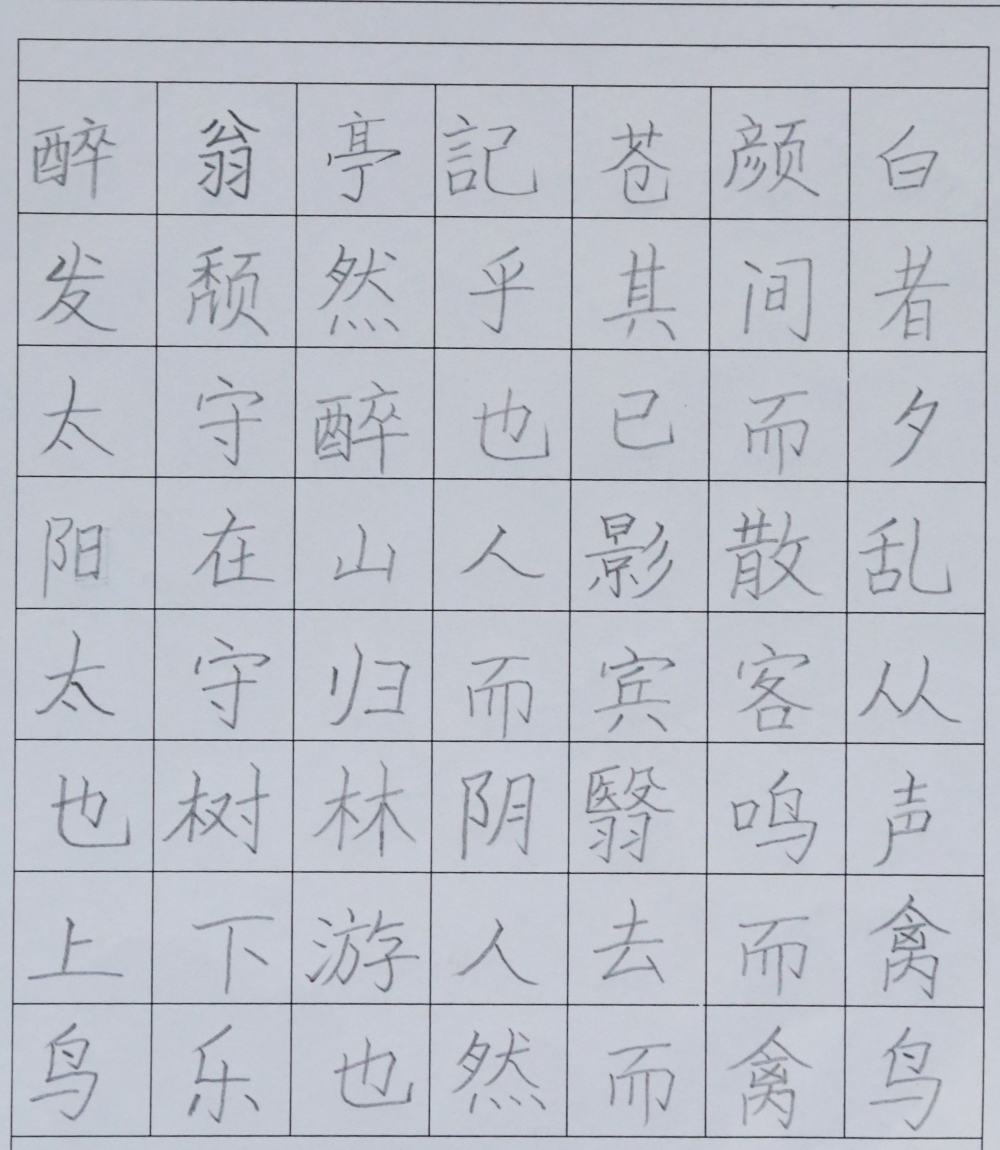 醉翁亭記苍颜白
发颓然乎其间者
太守醉也已而夕
阳在山人影散乱
太守归而宾客从
也树林阴翳鸣声
上下游人去而禽
鸟乐也然而禽鸟